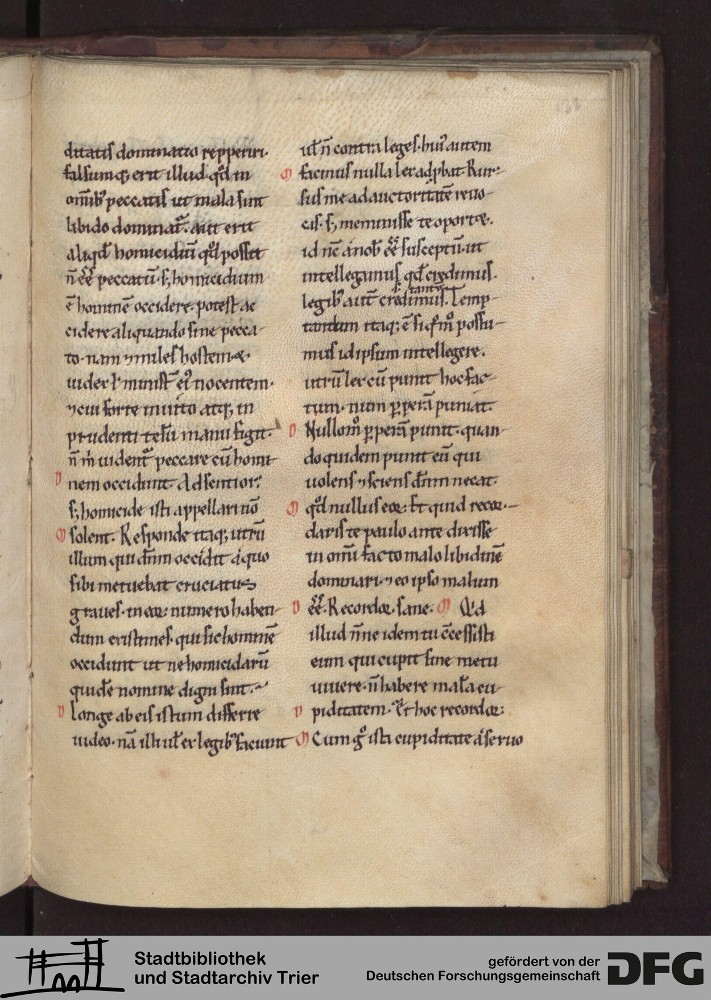 ditatis dominatio repperiri.
falsumq; erit illud. qd in
omib; peccatis ut mala sint
libido dominat̄. aut erit
aliqd homicidiū qd possit
n̄ eē peccatū. s; homicidium
ē hominē occidere. potest ac
cidere aliquando sine pecca-
to. nam & miles hostem. &
iudex ł minist̄ ei' nocentem.
& cui forte inuito atq; in
prudenti telū manu fugit.
n̄ m̄ uident̄ peccare cū homi
D nem occidunt. Adsentior.
s; homicide isti appellari nō
solent. Responde itaq; utrū
illum qui dn̄m occidit a quo
sibi metuebat cruciatus
graues. in eoꝝ numero haben-
dum existimes. qui sic hominē
occidunt ut ne homicidarū
quidē nomine digni sint.
D Longe ab eis istum differre
uideo. nā illi uł ex legib; faciunt
uł n̄ contra leges. hui' autem
facinus nulla lex adpbat. Rur-
sus me ad auctoritatē reuo-
cas. s; meminisse te oportet.
id nc̄ a nob̄ eē susceptū. ut
intellegamus qd credimus.
legib; aut̄ credimus. Temp-
tandum itaq; ē si qm̊ possu-
mus id ipsum intellegere.
utrū lex cū punit hoc fac-
tum. num ꝑperā puniat.
D Nullom̊ ꝑperā punit. quan-
do quidem punit eū qui
uolens & sciens dn̄m necat.
qd nullus eoꝝ. Et quid recor-
daris te paulo ante dixisse
in omi facto malo libidinē
dominari. & eo ipso malum
D eē. Recordoꝝ sane. Qd
illud n̄ne idem tu c̄cessisti
eum qui cupit sine metu
uiuere. n̄ habere malā cu-
D piditatem. Et hoc recordoꝝ.
Cum g̊ ista cupiditate a seruo
Stadtbibliothek
und Stadtarchiv Trier
gefördert von der
Deutschen Forschungsgemeinschaft
DFG